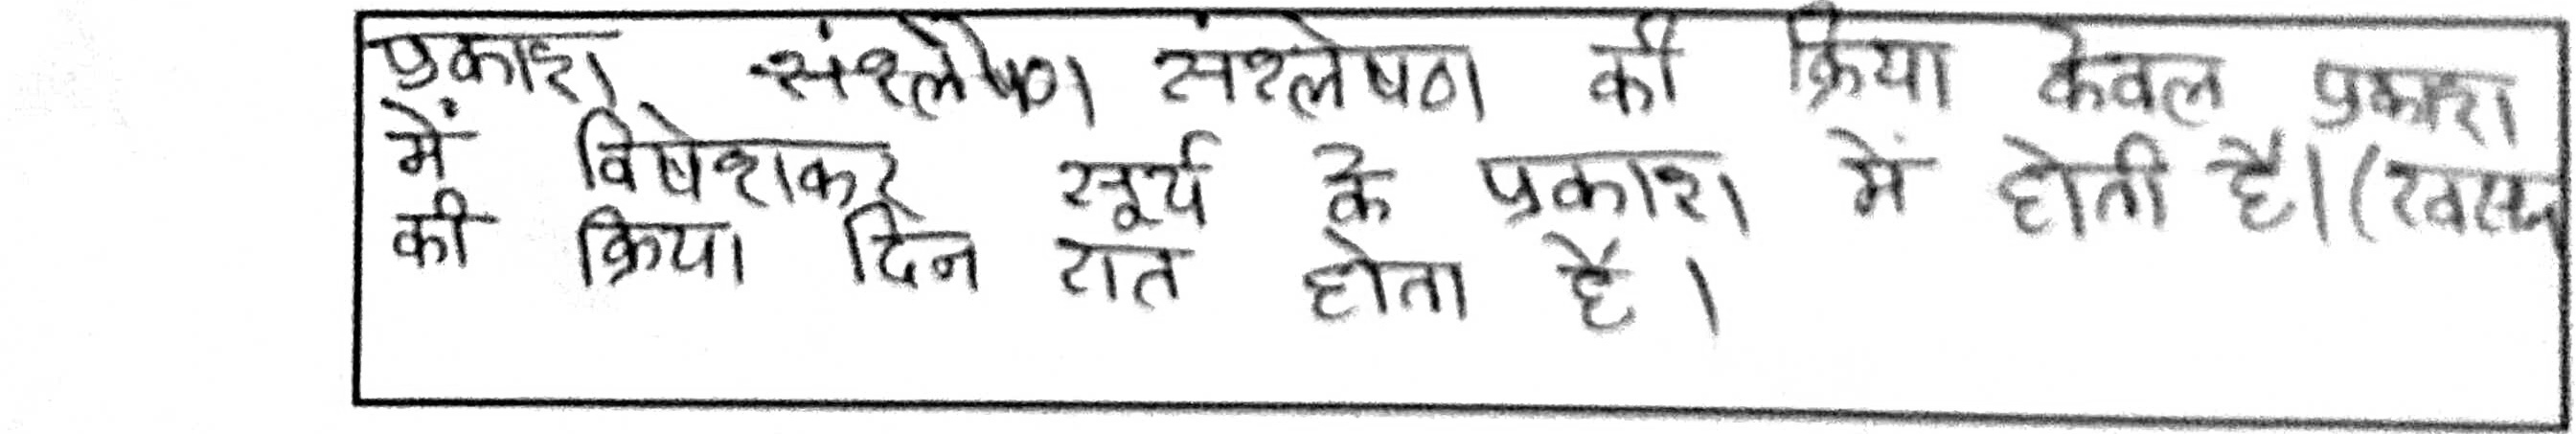 प्रकाश संश्लेषण संश्लेषण की क्रिया केवल प्रकाश
में विषेशकर सूर्य के प्रकाश में होती है।
की क्रिया दिन रात होता है।